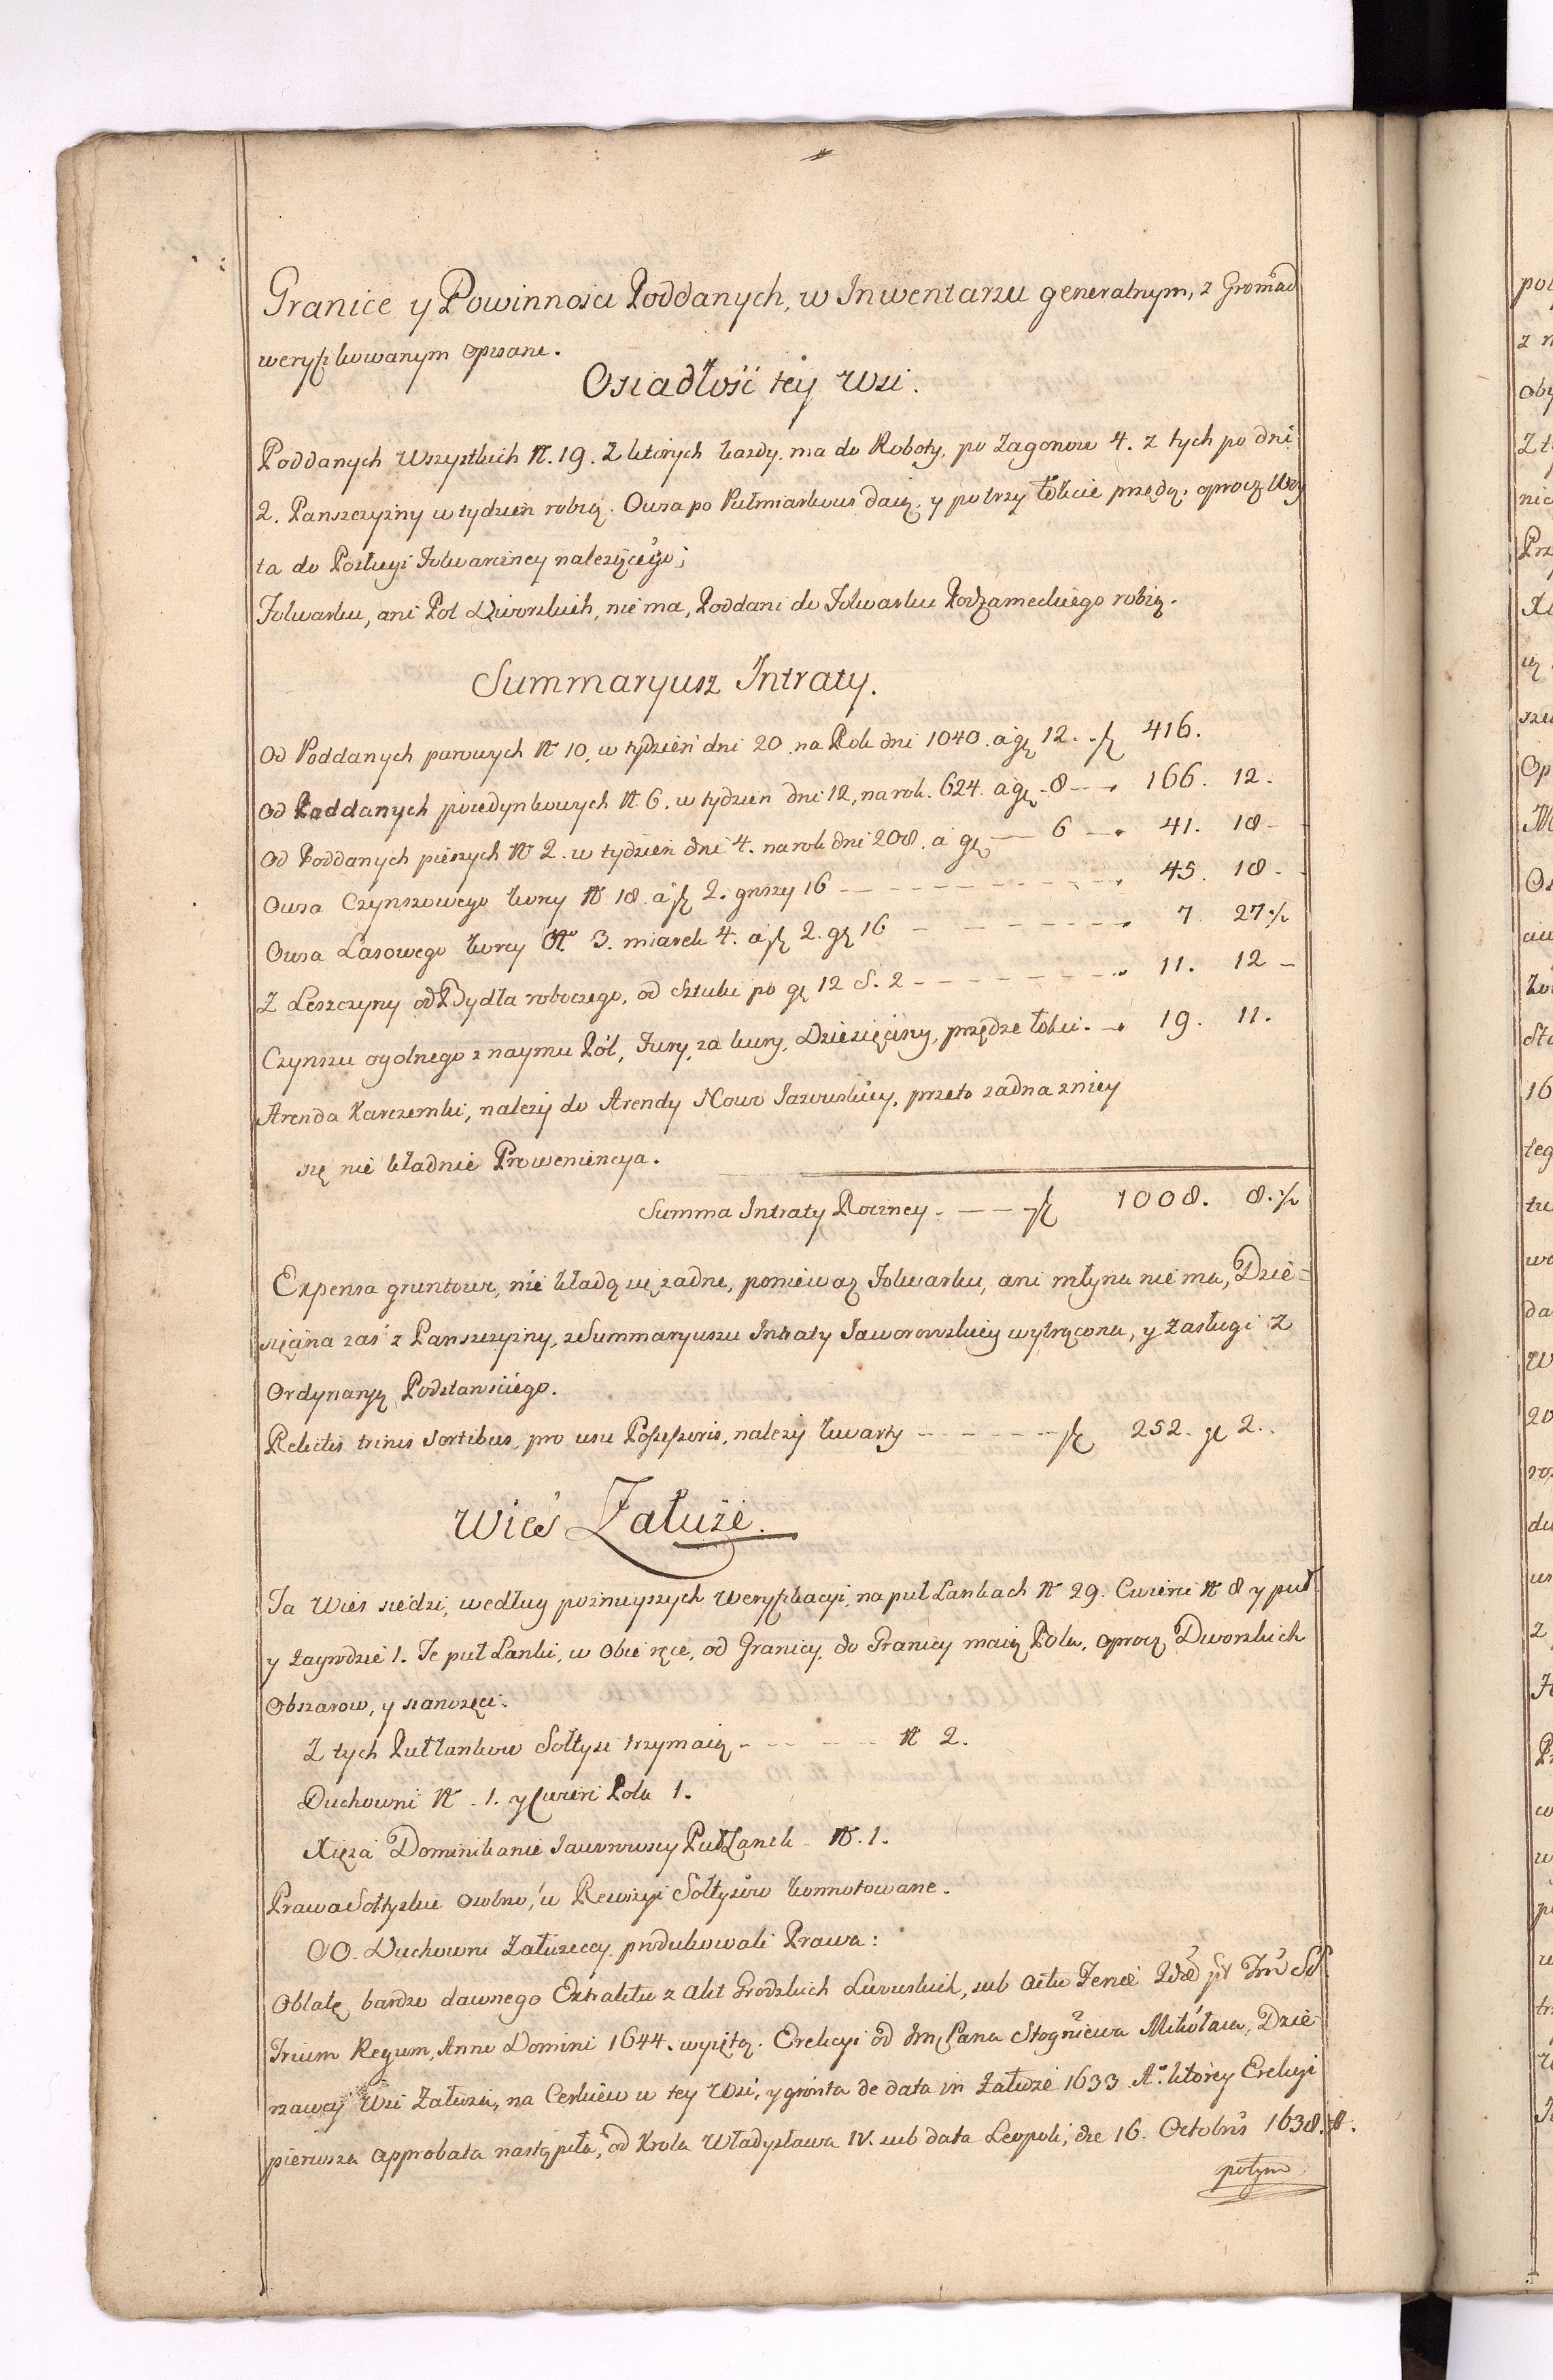 Granice y Powinności Poddanych, w Inwentarzu generalnym, z Gromad
weryfikowanym opisane.
Osiadłość tey Wsi.
Poddanych Wszystkich N. 19. Z ktorych kazdy ma do Roboty, po Zagonow 4. z tych po dni
2. Panszczyzny w tydzien robią. Owsa po Pułmiarkow daią, y po trzy łokcie przędą, oprocz Woy
ta do Posługi Folwarczney należącego;
Folwarku, ani Pol Dworskich, nie ma, Poddani do Folwarku Podzameckiego robią.
Summaryusz Intraty.
Od Poddanych parowych N 10, w tydzień dni 20. na Rok dni 1040. a gz 12. fl 416.
Od Poddanych poiedynkowych N. 6. w tydzien dni 12, na rok. 624. a gz. 8 166. 12.
Od Poddanych pieszych N 2. w tydzień dni 4. na rok dni 208. a gz 6 41. 18
Owsa Czynszowego korcy N 18. a fl 2. groszy 16 45. 18
Owsa Lasowego korcy N. 3. miarek 4. a fl 2. gz 16 7 27 ½
Z Leszczyny od Bydła roboczego, od Sztuki po gz 12 S. 2 11. 12
Czynszu ogolnego z naymu Pól, Fury, za kury, Dziesięciny, przędze łokci. 19. 11.
Arenda Karczemki, należy do Arendy Nowo Jazowskiey, przeto zadna zniey
się nie kładnie Prowenencya.
Summa Intraty Roczney fl 1008. 8. ½
Expensa gruntowe, nie kładą się zadne, poniewaz Folwarku, ani młyna nie ma, Dzie=
sięcina zas z Panszczyzny, z Summaryuszu Intraty Jaworowskiey wytrącona, y Zasługi z
Ordynaryą Podstarościego.
Relictis trinis Sortibus, pro usu Possessoris, należy kwarty fl 252. gz 2.
Wieś Załuże.
Ta Wieś siedzi, według poźnieyszych Weryfikacyi, na puł Lankach N 29. Cwierci N 8 y puł
y Zagrodzie 1. Te puł Lanki, w obie ręce, od Granicy, do Granicy maią Pola, oprocz Dworskich
Obszarow, y sianożęci.
Z tych Pułłankow Sołtysi trzymaią N 2.
Duchowni N. 1. y Cwierć Pola 1.
Xięza Dominikanie Jaworowscy Puł Łanek N. 1.
Prawa Sołtyskie osobno, w Rewizyi Sołtysów konnotowane.
OO. Duchowni Załuzeccy produkowali Prawa:
Oblatę bardzo dawnego Extraktu z Akt Grodzkich Lwowskich, sub actu SS.
Trium Regum, Anno Domini 1644. wyiętą. Erekcyi od Pana Stogniewa Mikołaia, Dzie
rzawcy Wsi Załuża, na Cerkiew w tey Wsi, y grónta de data in Załuże 1633 A. ktorey Erekcyi
pierwsza approbata nastąpiła, od Krola Władysława IV. sub data Leopoli, die 16. Octobris 1638.
potym